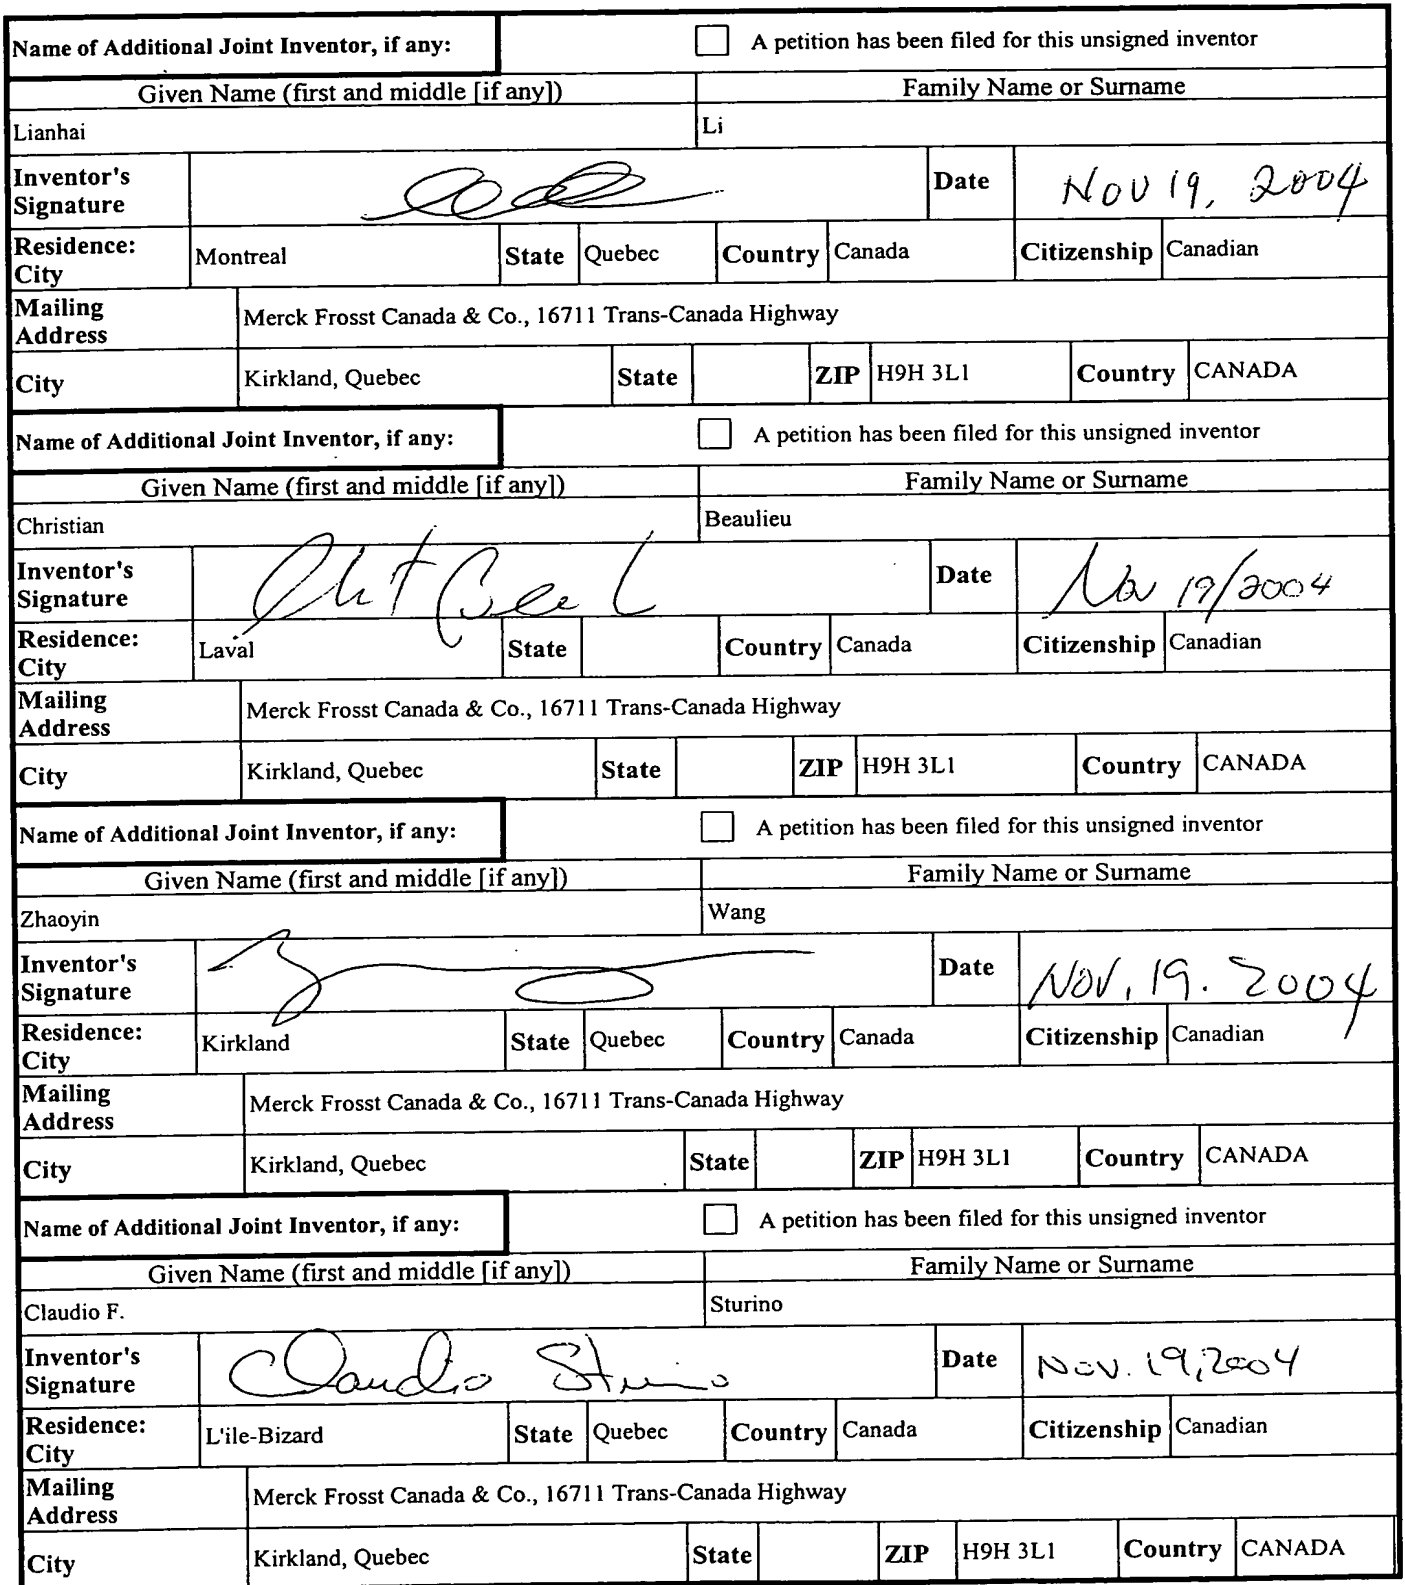 Name of Additional Joint Inventor, if any: A petition has been filed for this unsigned inventor
Given Name (first and middle [if any]) Family Name or Surname
Lianhai Li
Inventor's Signature Date Nov 19, 2004
Residence: City Montreal State Quebec Country Canada Citizenship Canadian
Mailing Address Merck Frosst Canada & Co., 16711 Trans-Canada Highway
City Kirkland, Quebec State ZIP H9H 3L1 Country CANADA
Name of Additional Joint Inventor, if any: A petition has been filed for this unsigned inventor
Given Name (first and middle [if any]) Family Name or Surname
Christian Beaulieu
Inventor's Signature Date Nov 19/2004
Residence: City Laval State Country Canada Citizenship Canadian
Mailing Address Merck Frosst Canada & Co., 16711 Trans-Canada Highway
City Kirkland, Quebec State ZIP H9H 3L1 Country CANADA
Name of Additional Joint Inventor, if any: A petition has been filed for this unsigned inventor
Given Name (first and middle [if any]) Family Name or Surname
Zhaoyin Wang
Inventor's Signature Date Nov. 19. 2004
Residence: City Kirkland State Quebec Country Canada Citizenship Canadian
Mailing Address Merck Frosst Canada & Co., 16711 Trans-Canada Highway
City Kirkland, Quebec State ZIP H9H 3L1 Country CANADA
Name of Additional Joint Inventor, if any: A petition has been filed for this unsigned inventor
Given Name (first and middle [if any]) Family Name or Surname
Claudio F. Sturino
Inventor's Signature Claudio Sturino Date Nov. 19, 2004
Residence: City L'ile-Bizard State Quebec Country Canada Citizenship Canadian
Mailing Address Merck Frosst Canada & Co., 16711 Trans-Canada Highway
City Kirkland, Quebec State ZIP H9H 3L1 Country CANADA